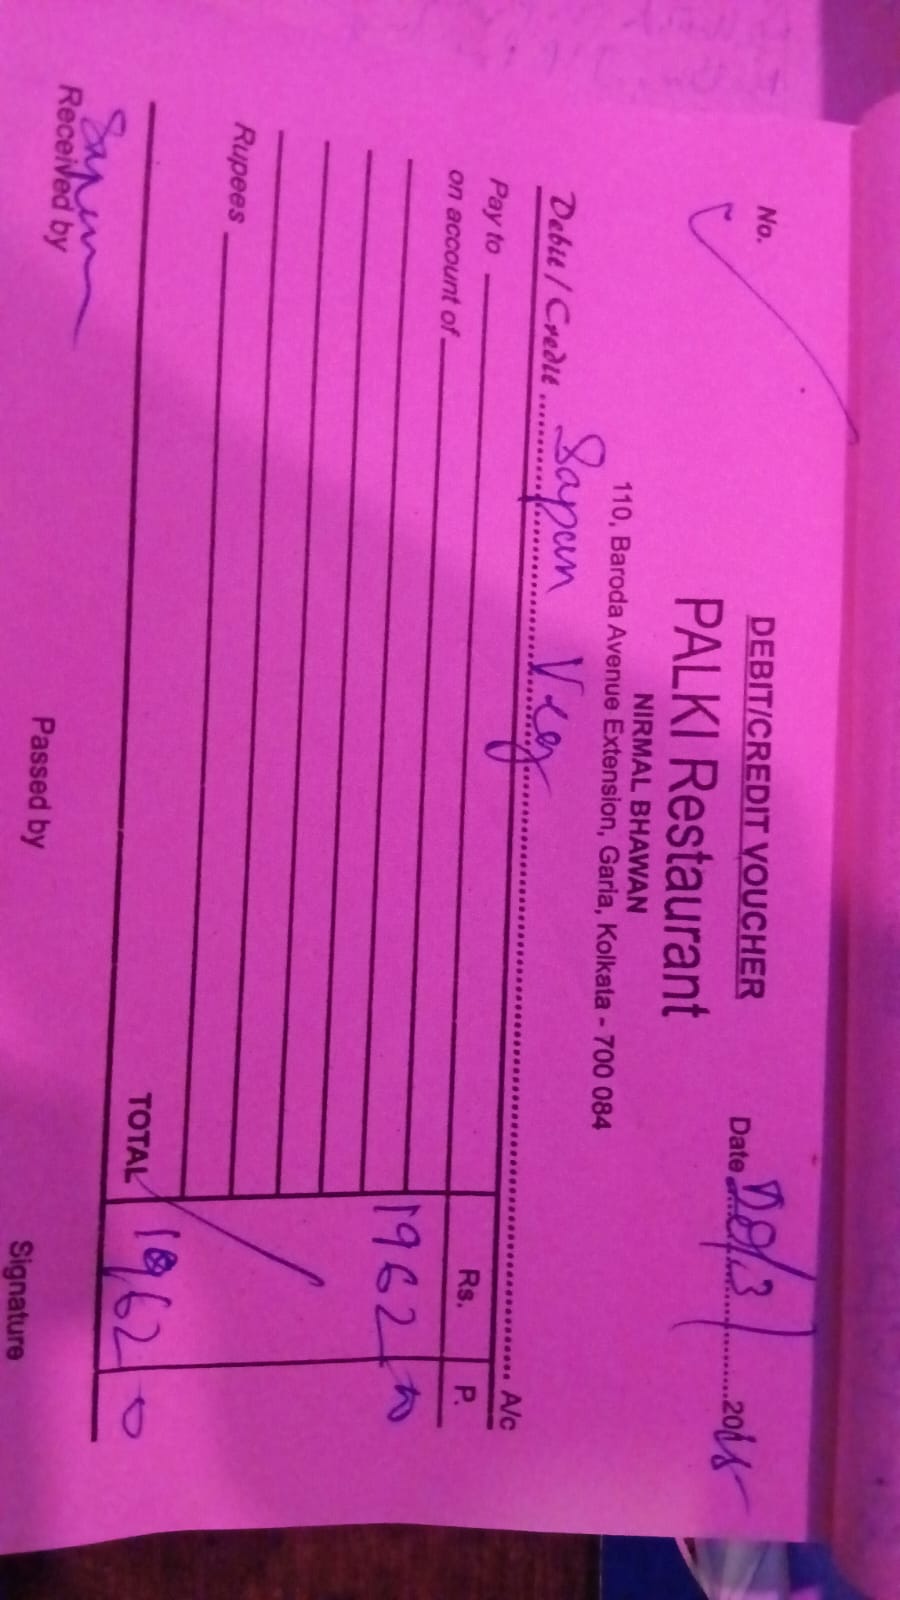 DEBIT/CREDIT VOUCHER
No. PALKI Restaurant Date
NIRMAL BHAWAN
110, Baroda Avenue Extension, Garia, Kolkata - 700 084
Debit / Credit Sapan Veg A/c
Pay to Rs. P.
on account of
1962
Rupees
TOTAL 1962 0
Sapan
Received by Passed by Signature